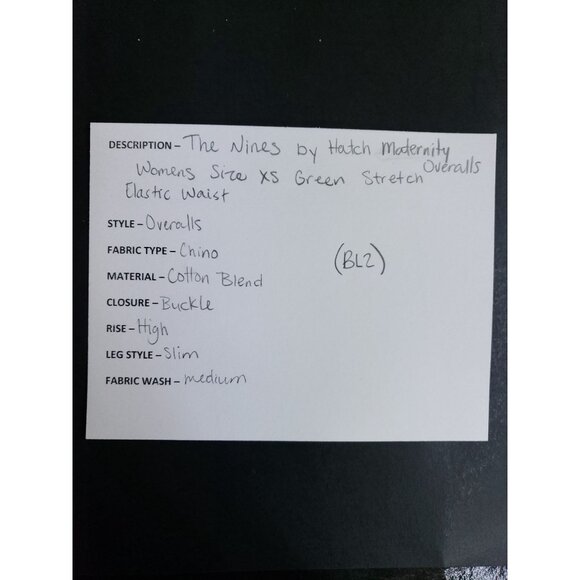 DESCRIPTION – The Nines by Hatch Maternity
Womens Size XS Green Stretch Overalls
Elastic Waist
STYLE – Overalls
FABRIC TYPE – Chino
(BL2)
MATERIAL – Cotton Blend
CLOSURE – Buckle
RISE – High
LEG STYLE – Slim
FABRIC WASH – medium